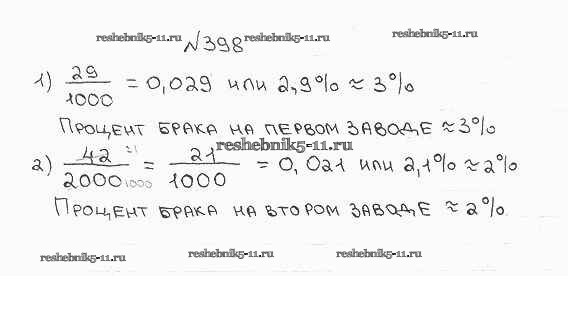 reshebnik5-11.ru №398 reshebnik5-11.ru reshebnik5-11.ru
1) 29/1000 = 0,029 или 2,9% ≈ 3%
Процент брака на первом заводе ≈ 3%
reshebnik5-11.ru
2) 42/2000 = 21/1000 = 0,021 или 2,1% ≈ 2%
21
1000
Процент брака на втором заводе ≈ 2%
reshebnik5-11.ru reshebnik5-11.ru reshebnik5-11.ru